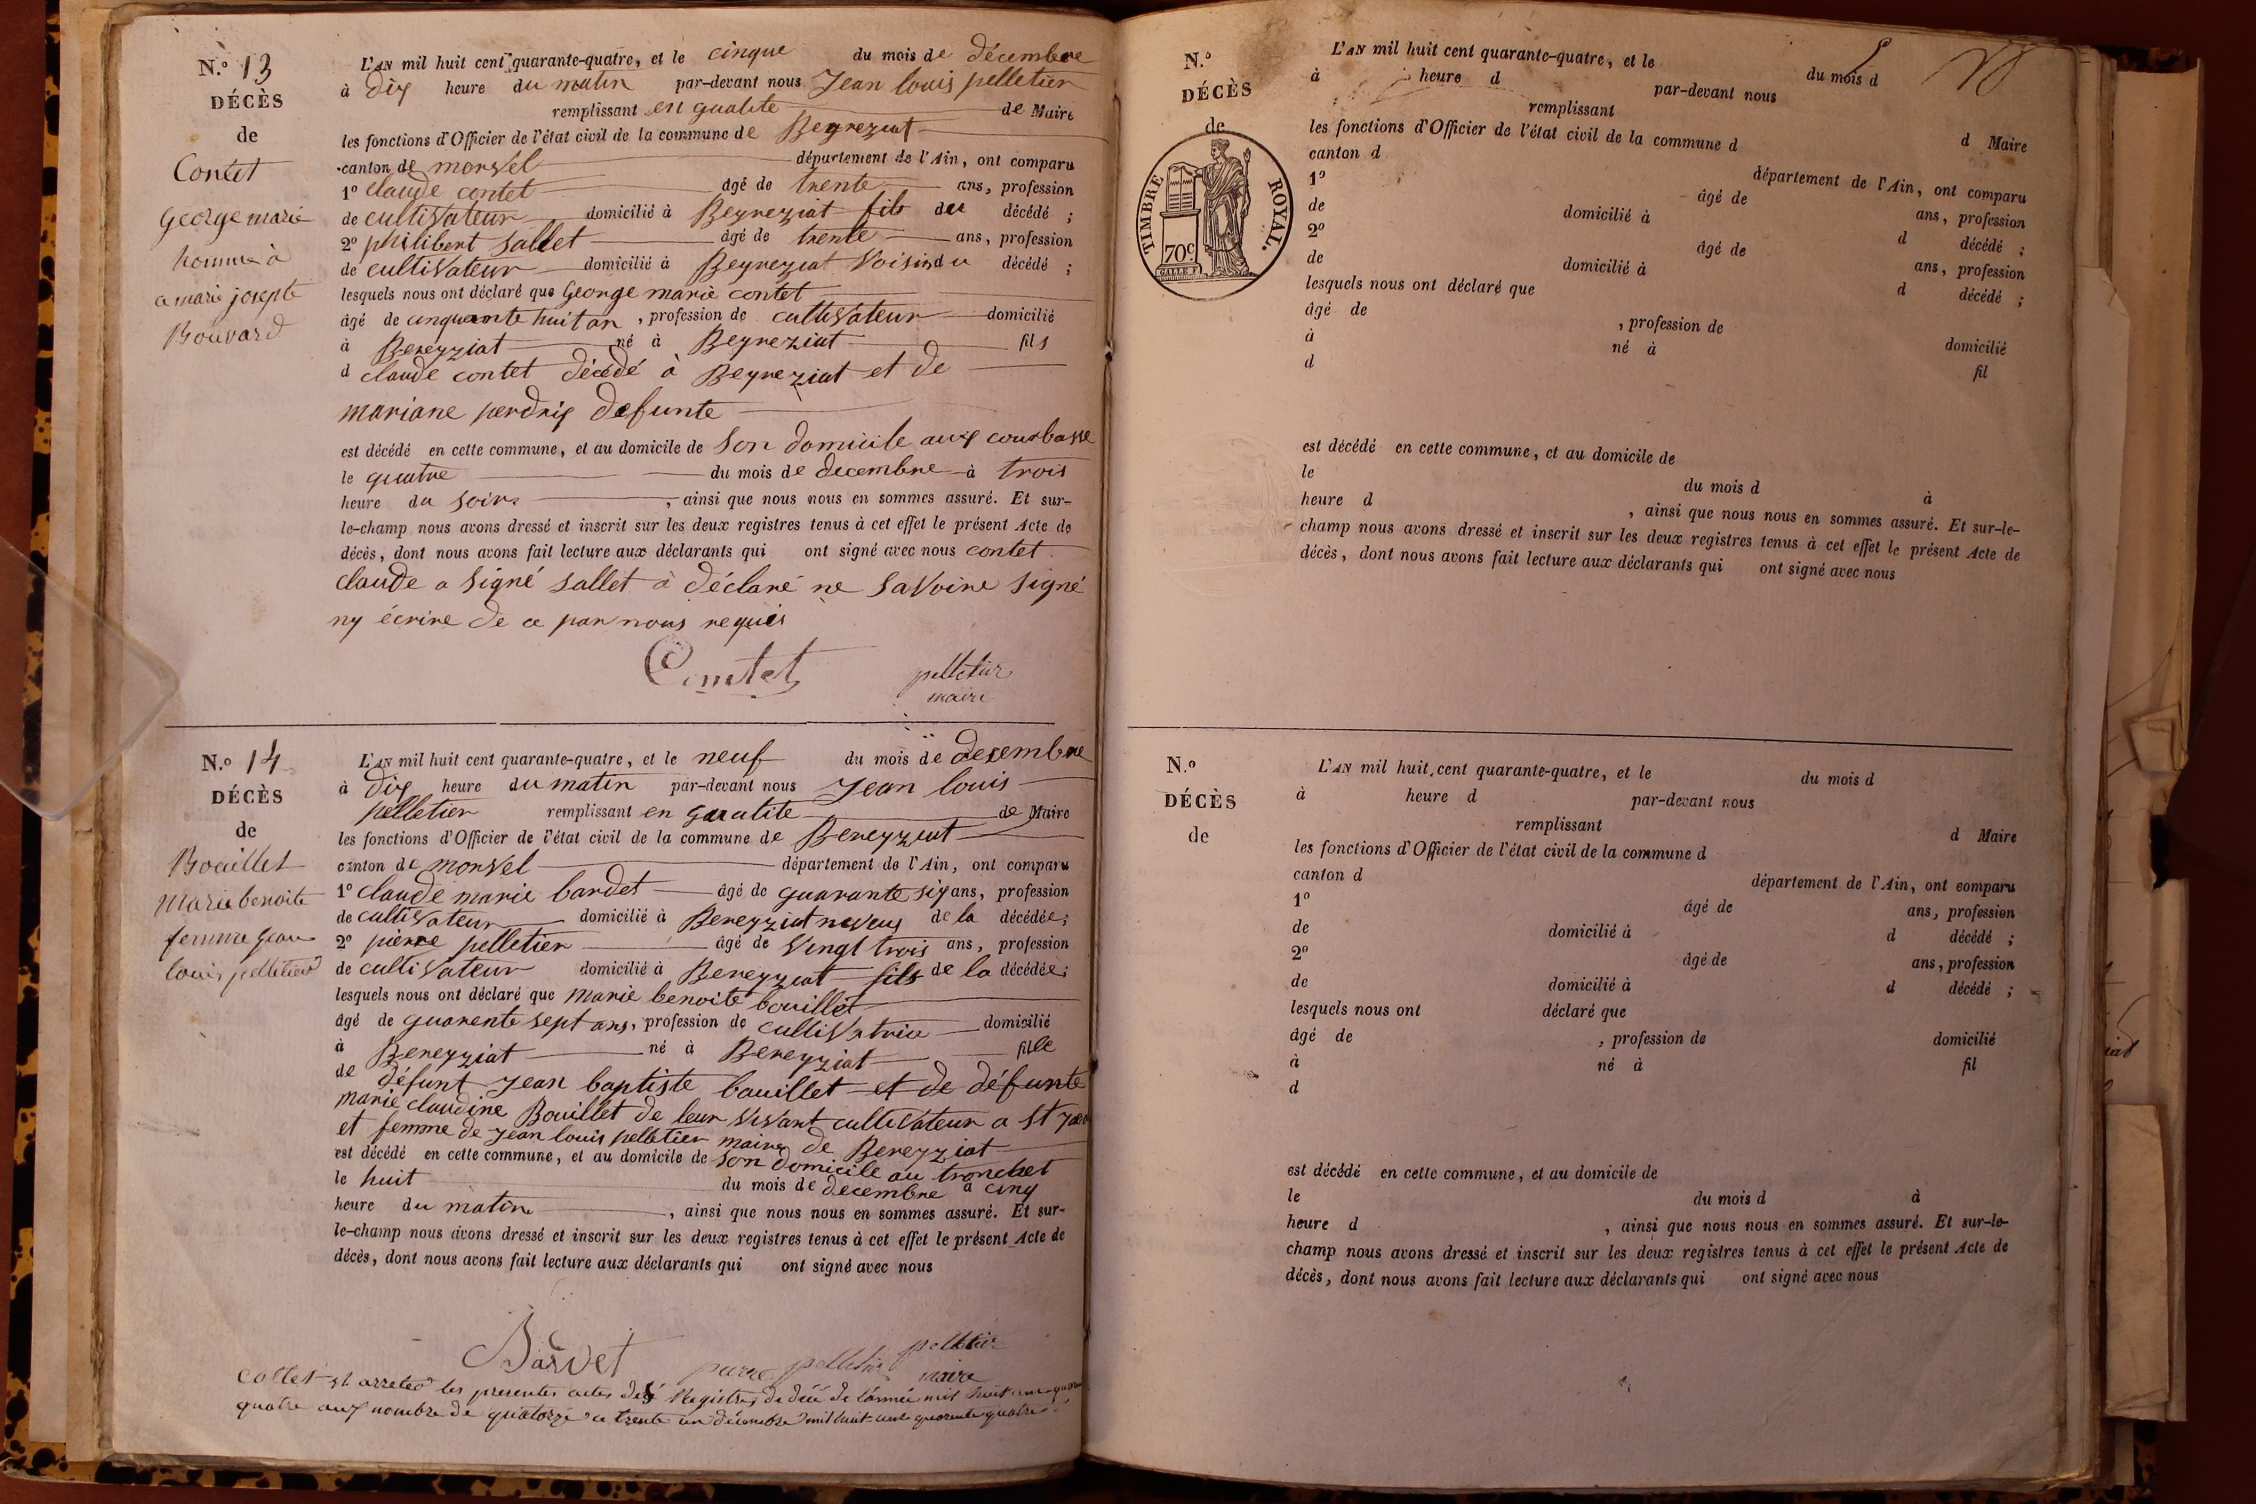 N.º 13
DÉCÈS
de
Contet
George marie
homme à
a marie josepte
Bouvard
L'AN mil huit cent quarante-quatre, et le cinque du mois de décembre
à dix heure du matin par-devant nous Jean louis pelletier
remplissant en qualité de Maire
les fonctions d'Officier de l'état civil de la commune de Beyreziat
canton de monvel département de l'Ain, ont comparu
1º claude contet âgé de trente ans, profession
de cultivateur domicilié à Beyreziat fils du décédé ;
2º philibert sallet âgé de trente ans, profession
de cultivateur domicilié à Beyreziat voisin du décédé ;
lesquels nous ont déclaré que George marie contet
âgé de cinquante huit an, profession de cultivateur domicilié
à Bereyziat né à Beyreziat fils
d claude contet décédé à Beyreziat et de
mariane perdrix defunte
est décédé en cette commune, et au domicile de son domicile aux courbasse
le quatre du mois de decembre à trois
heure du soire, ainsi que nous nous en sommes assuré. Et sur-
le-champ nous avons dressé et inscrit sur les deux registres tenus à cet effet le présent Acte de
décès, dont nous avons fait lecture aux déclarants qui ont signé avec nous contet
claude a signé sallet à déclaré ne savoire signé
ny écrire de ce par nous requis
Contet pelletier
maire
N.º 14
DÉCÈS
de
Bouillet
Marie benoite
femme jean
louis pelletier
L'AN mil huit cent quarante-quatre, et le neuf du mois de decembre
à dix heure du matin par-devant nous Jean louis
pelletier remplissant en qualite de Maire
les fonctions d'Officier de l'état civil de la commune de Bereyziat
canton de monvel département de l'Ain, ont comparu
1º claude marie bardet âgé de quarante six ans, profession
de cultivateur domicilié à Bereyziat neveux de la décédée;
2º pierre pelletier âgé de vingt trois ans, profession
de cultivateur domicilié à Bereyziat fils de la décédée;
lesquels nous ont déclaré que marie benoite bouillet
âgé de quarente sept ans, profession de cultivatrice domicilié
à Bereyziat né à Bereyziat fille
de défunt Jean baptiste bouillet et de défunte
marie claudine Bouillet de leur vivant cultivateur a St
et femme de jean louis pelletier maire de Bereyziat
est décédé en cette commune, et au domicile de son domicile au tronchet
le huit du mois de decembre à cinq
heure du matin, ainsi que nous nous en sommes assuré. Et sur-
le-champ nous avons dressé et inscrit sur les deux registres tenus à cet effet le présent Acte de
décès, dont nous avons fait lecture aux déclarants qui ont signé avec nous
pierre pelletier pelletier
maire
et arreter les presentes actes des Registres de décé de l'année mil huit cent
quatre aux nombre de quatorze ce trente un décembre mil huit cent quarente quatre
N.º
DÉCÈS
de
TIMBRE ROYAL.
70c
L'AN mil huit cent quarante-quatre, et le du mois d
à heure d par-devant nous
remplissant d Maire
les fonctions d'Officier de l'état civil de la commune d
canton d département de l'Ain, ont comparu
1º âgé de ans, profession
de domicilié à d décédé ;
2º âgé de ans, profession
de domicilié à d décédé ;
lesquels nous ont déclaré que
âgé de , profession de domicilié
à né à fil
d
est décédé en cette commune, et au domicile de
le du mois d à
heure d , ainsi que nous nous en sommes assuré. Et sur-le-
champ nous avons dressé et inscrit sur les deux registres tenus à cet effet le présent Acte de
décès, dont nous avons fait lecture aux déclarants qui ont signé avec nous
N.º
DÉCÈS
de
L'AN mil huit cent quarante-quatre, et le du mois d
à heure d par-devant nous
remplissant d Maire
les fonctions d'Officier de l'état civil de la commune d
canton d département de l'Ain, ont comparu
1º âgé de ans, profession
de domicilié à d décédé ;
2º âgé de ans, profession
de domicilié à d décédé ;
lesquels nous ont déclaré que
âgé de , profession de domicilié
à né à fil
d
est décédé en cette commune, et au domicile de
le du mois d à
heure d , ainsi que nous nous en sommes assuré. Et sur-le-
champ nous avons dressé et inscrit sur les deux registres tenus à cet effet le présent Acte de
décès, dont nous avons fait lecture aux déclarants qui ont signé avec nous